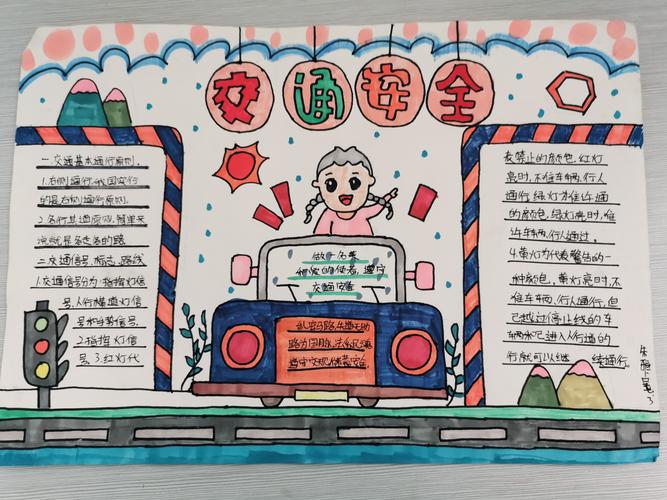 交通安全
一.交通基本通行原则.
1.右侧通行.我国实行
的是右侧通行原则.
2.各行其道原则.简单来
说就是各走各的路
二.交通信号、标志、路线
1.交通信号分为:指挥灯信
号.人行横道灯信
号和手势信号.
2.指挥灯信
号.3.红灯代
做一名
文明使者,遵守
交通安全
遵守交规保安全
表禁止的颜色.红灯
亮时,不准车辆、行人
通行.绿灯为准许通
的颜色,绿灯亮时,准
许车辆、行人通过.
4.黄灯为代表警告的一
种颜色,黄灯亮时,不
准车辆、行人通行,但
已越过停止线的车
辆和已进入人行道的
行人就可以继续通行。